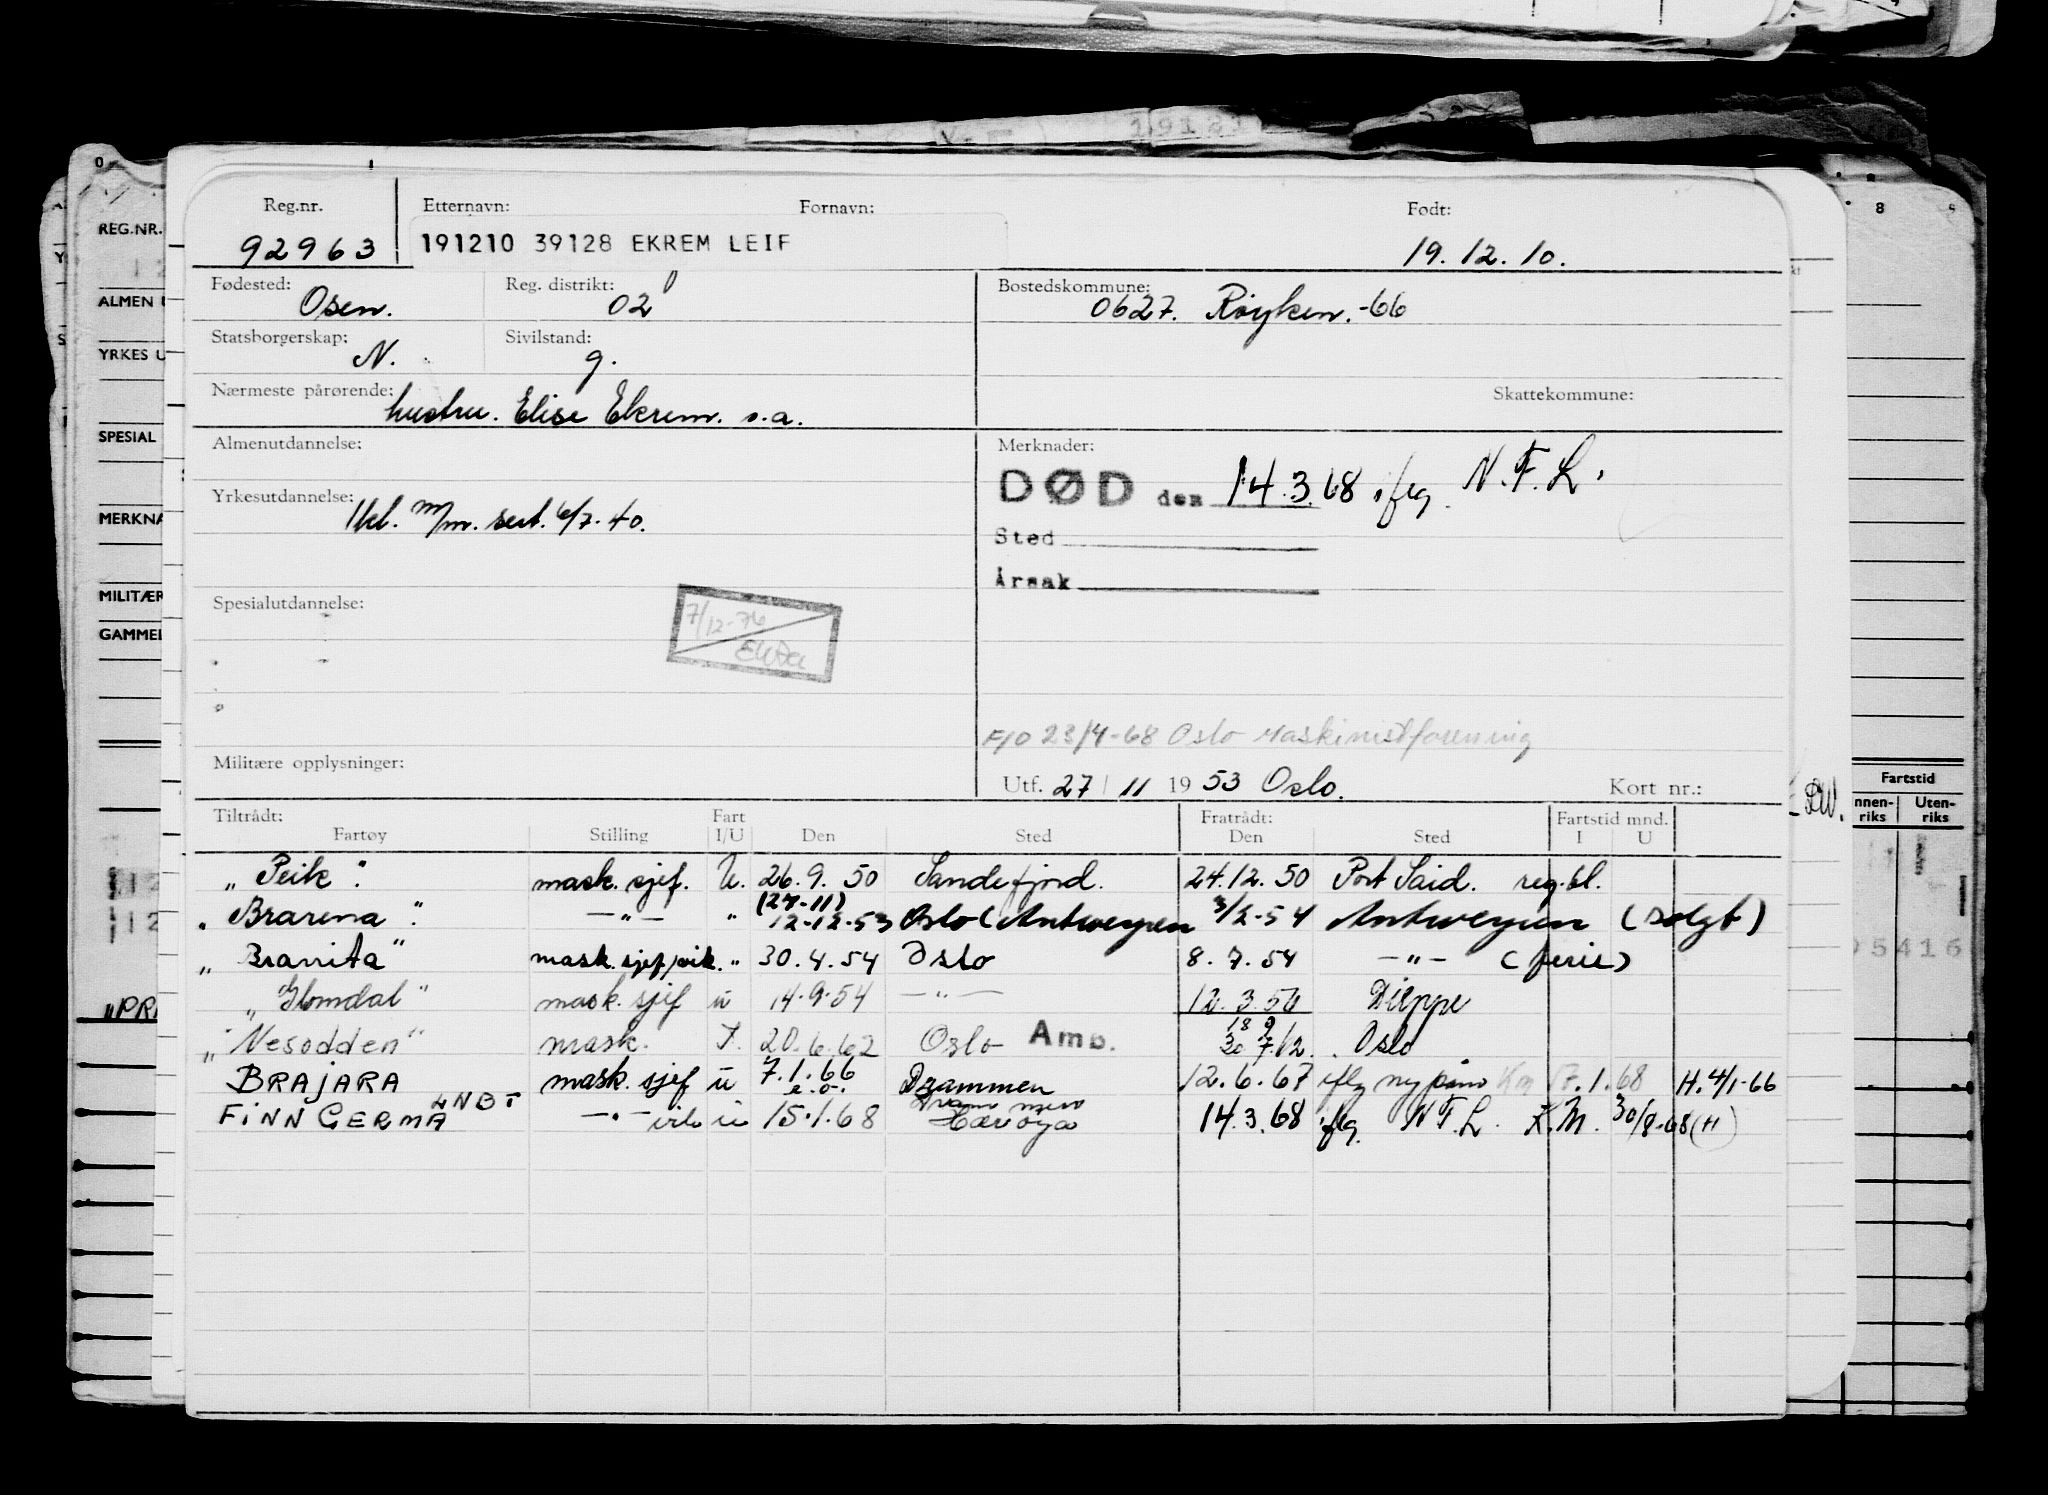 Reg.nr. Etternavn: Fornavn: Født:
92963 191210 39128 EKREM LEIF 19.12.10.
Fødested: Osen. Reg. distrikt: 02 Bostedskommune: 0627. Røyken.-66
Statsborgerskap: N. Sivilstand: g.
Nærmeste pårørende: hustru. Elise Ekrem. s.a. Skattekommune:
Almenutdannelse: Merknader:
DØD den 14.3.68 iflg. N.F.L.
Yrkesutdannelse: 1kl. m/m. sert. 6/7.40.
Sted
Årsak
Spesialutdannelse:
7/12-76
F/O 23/4-68 Oslo Maskinistforening
Militære opplysninger: Utf. 27/11 1953 Oslo. Kort nr.:
Tiltrådt: Fart Fratrådt: Fartstid mnd.
Fartøy Stilling I/U Den Sted Den Sted I U
"Peik". mask. sjef. U. 26.9.50 Sandefjord. 24.12.50 Port Said. reg.bl.
(27-11)
"Brarena". —"— " 12-12-53 Oslo (Antwerpen 3/2-54 Antwerpen (solgt)
"Branita" mask. sjef/vik. " 30.4.54 Oslo 8.7.54 —"— (ferie)
"Glomdal" mask. sjef u 14.9.54 —"— 12.3.56 Dieppe
18 9
"Nesodden" mask. I. 20.6.62 Oslo Amb. 30 7.62. Oslo
BRAJARA mask. sjef u 7.1.66 Drammen 12.6.67 iflg ny påm Km 17.1.68 H.4/1-66
e.o.
LNBT Drammen
FINN GERMA —"— u 15.1.68 Herøya 14.3.68 iflg. N.F.L. K.M. 30/8-68 (H)
REG.NR.
ALMEN
YRKES U
SPESIAL
MERKNA
MILITÆR
GAMMEL
"PR
8
DW.
Fartstid
nnen-riks Uten-riks
5416